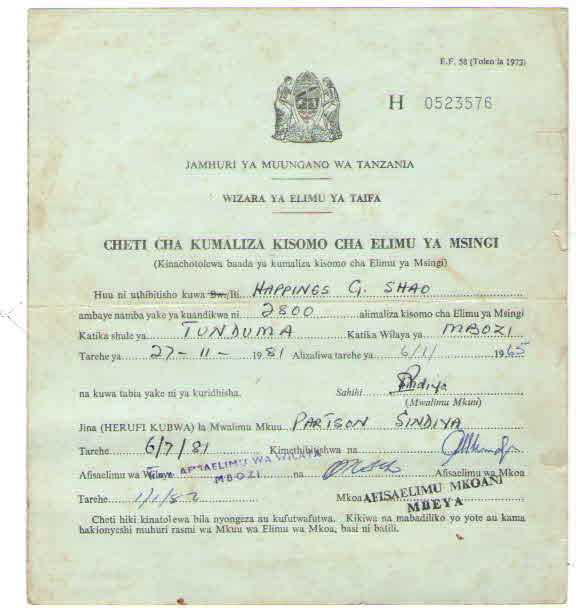 E.F. 58 (Toleo la 1973)
H 0523576
JAMHURI YA MUUNGANO WA TANZANIA
WIZARA YA ELIMU YA TAIFA
CHETI CHA KUMALIZA KISOMO CHA ELIMU YA MSINGI
(Kinachotolewa baada ya kumaliza kisomo cha Elimu ya Msingi)
Huu ni uthibitisho kuwa Bw./Bi. HAPPINGS G. SHAO
ambaye namba yake ya kuandikwa ni 2800 alimaliza kisomo cha Elimu ya Msingi
Katika shule ya TUNDUMA Katika Wilaya ya MBOZI
Tarehe ya 27-11- 1981 Alizaliwa tarehe ya 6/1/ 1965
na kuwa tabia yake ni ya kuridhisha. Sahihi Sindiya
(Mwalimu Mkuu)
Jina (HERUFI KUBWA) la Mwalimu Mkuu PARTSON SINDIYA
Tarehe 6/7/81 Kimethibitishwa na
Afisaelimu wa Wilaya AFISAELIMU WA WILAYA na Afisaelimu wa Mkoa
MBOZI
Tarehe 1/1/82 Mkoa AFISAELIMU MKOANI
MBEYA
Cheti hiki kinatolewa bila nyongeza au kufutwafutwa. Kikiwa na mabadiliko yo yote au kama
hakionyeshi muhuri rasmi wa Mkuu wa Elimu wa Mkoa, basi ni batili.